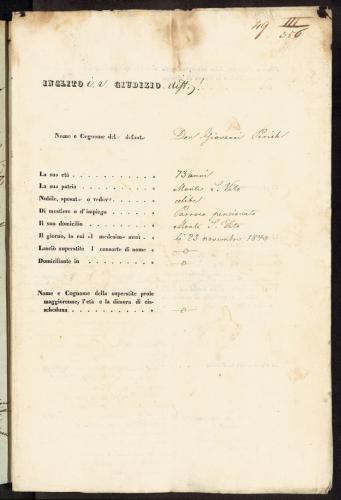 49 III
356
INCLITO i. r. GIUDIZIO distr.!
Nome e Cognome del defunto Don Giovanni
La sua età . . . . . . . . . . . „ 73 anni
La sua patria . . . . . . . . . . „ Monte S. Vito
Nubile, sposat- o vedov- . . . . . „ celibe
Di mestiere o d'impiego . . . . . „ Parroco pensionato
Il suo domicilio . . . . . . . . . „ Monte S. Vito
Il giorno, in cui -l medesim- morì . „ Li 23 novembre
Lasciò superstite l consorte di nome . „ —o—
Domiciliante in . . . . . . . . . „ —o—
Nome e Cognome della superstite prole
maggiorenne, l'età e la dimora di cia-
scheduna . . . . . . . . . . . „ —o—